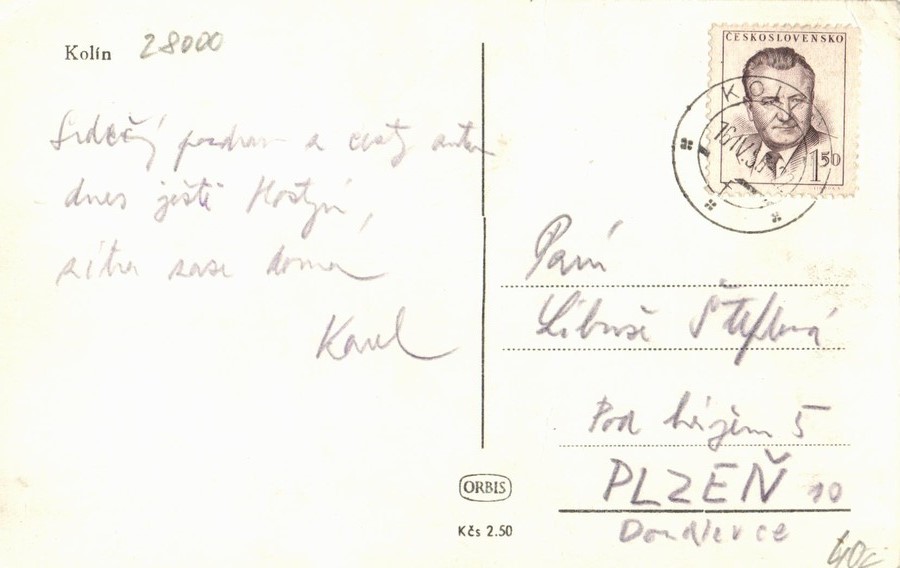 Kolín 28000
Srdečný pozdrav z cesty autem
dnes ještě Hostýn,
zítra zase doma
Karel
ČESKOSLOVENSKO
1 50
KOLÍN
16.IV.5
Paní
Libuše
Pod hájem 5
PLZEŇ 10
Doudlevce
ORBIS
Kčs 2.50
40,-